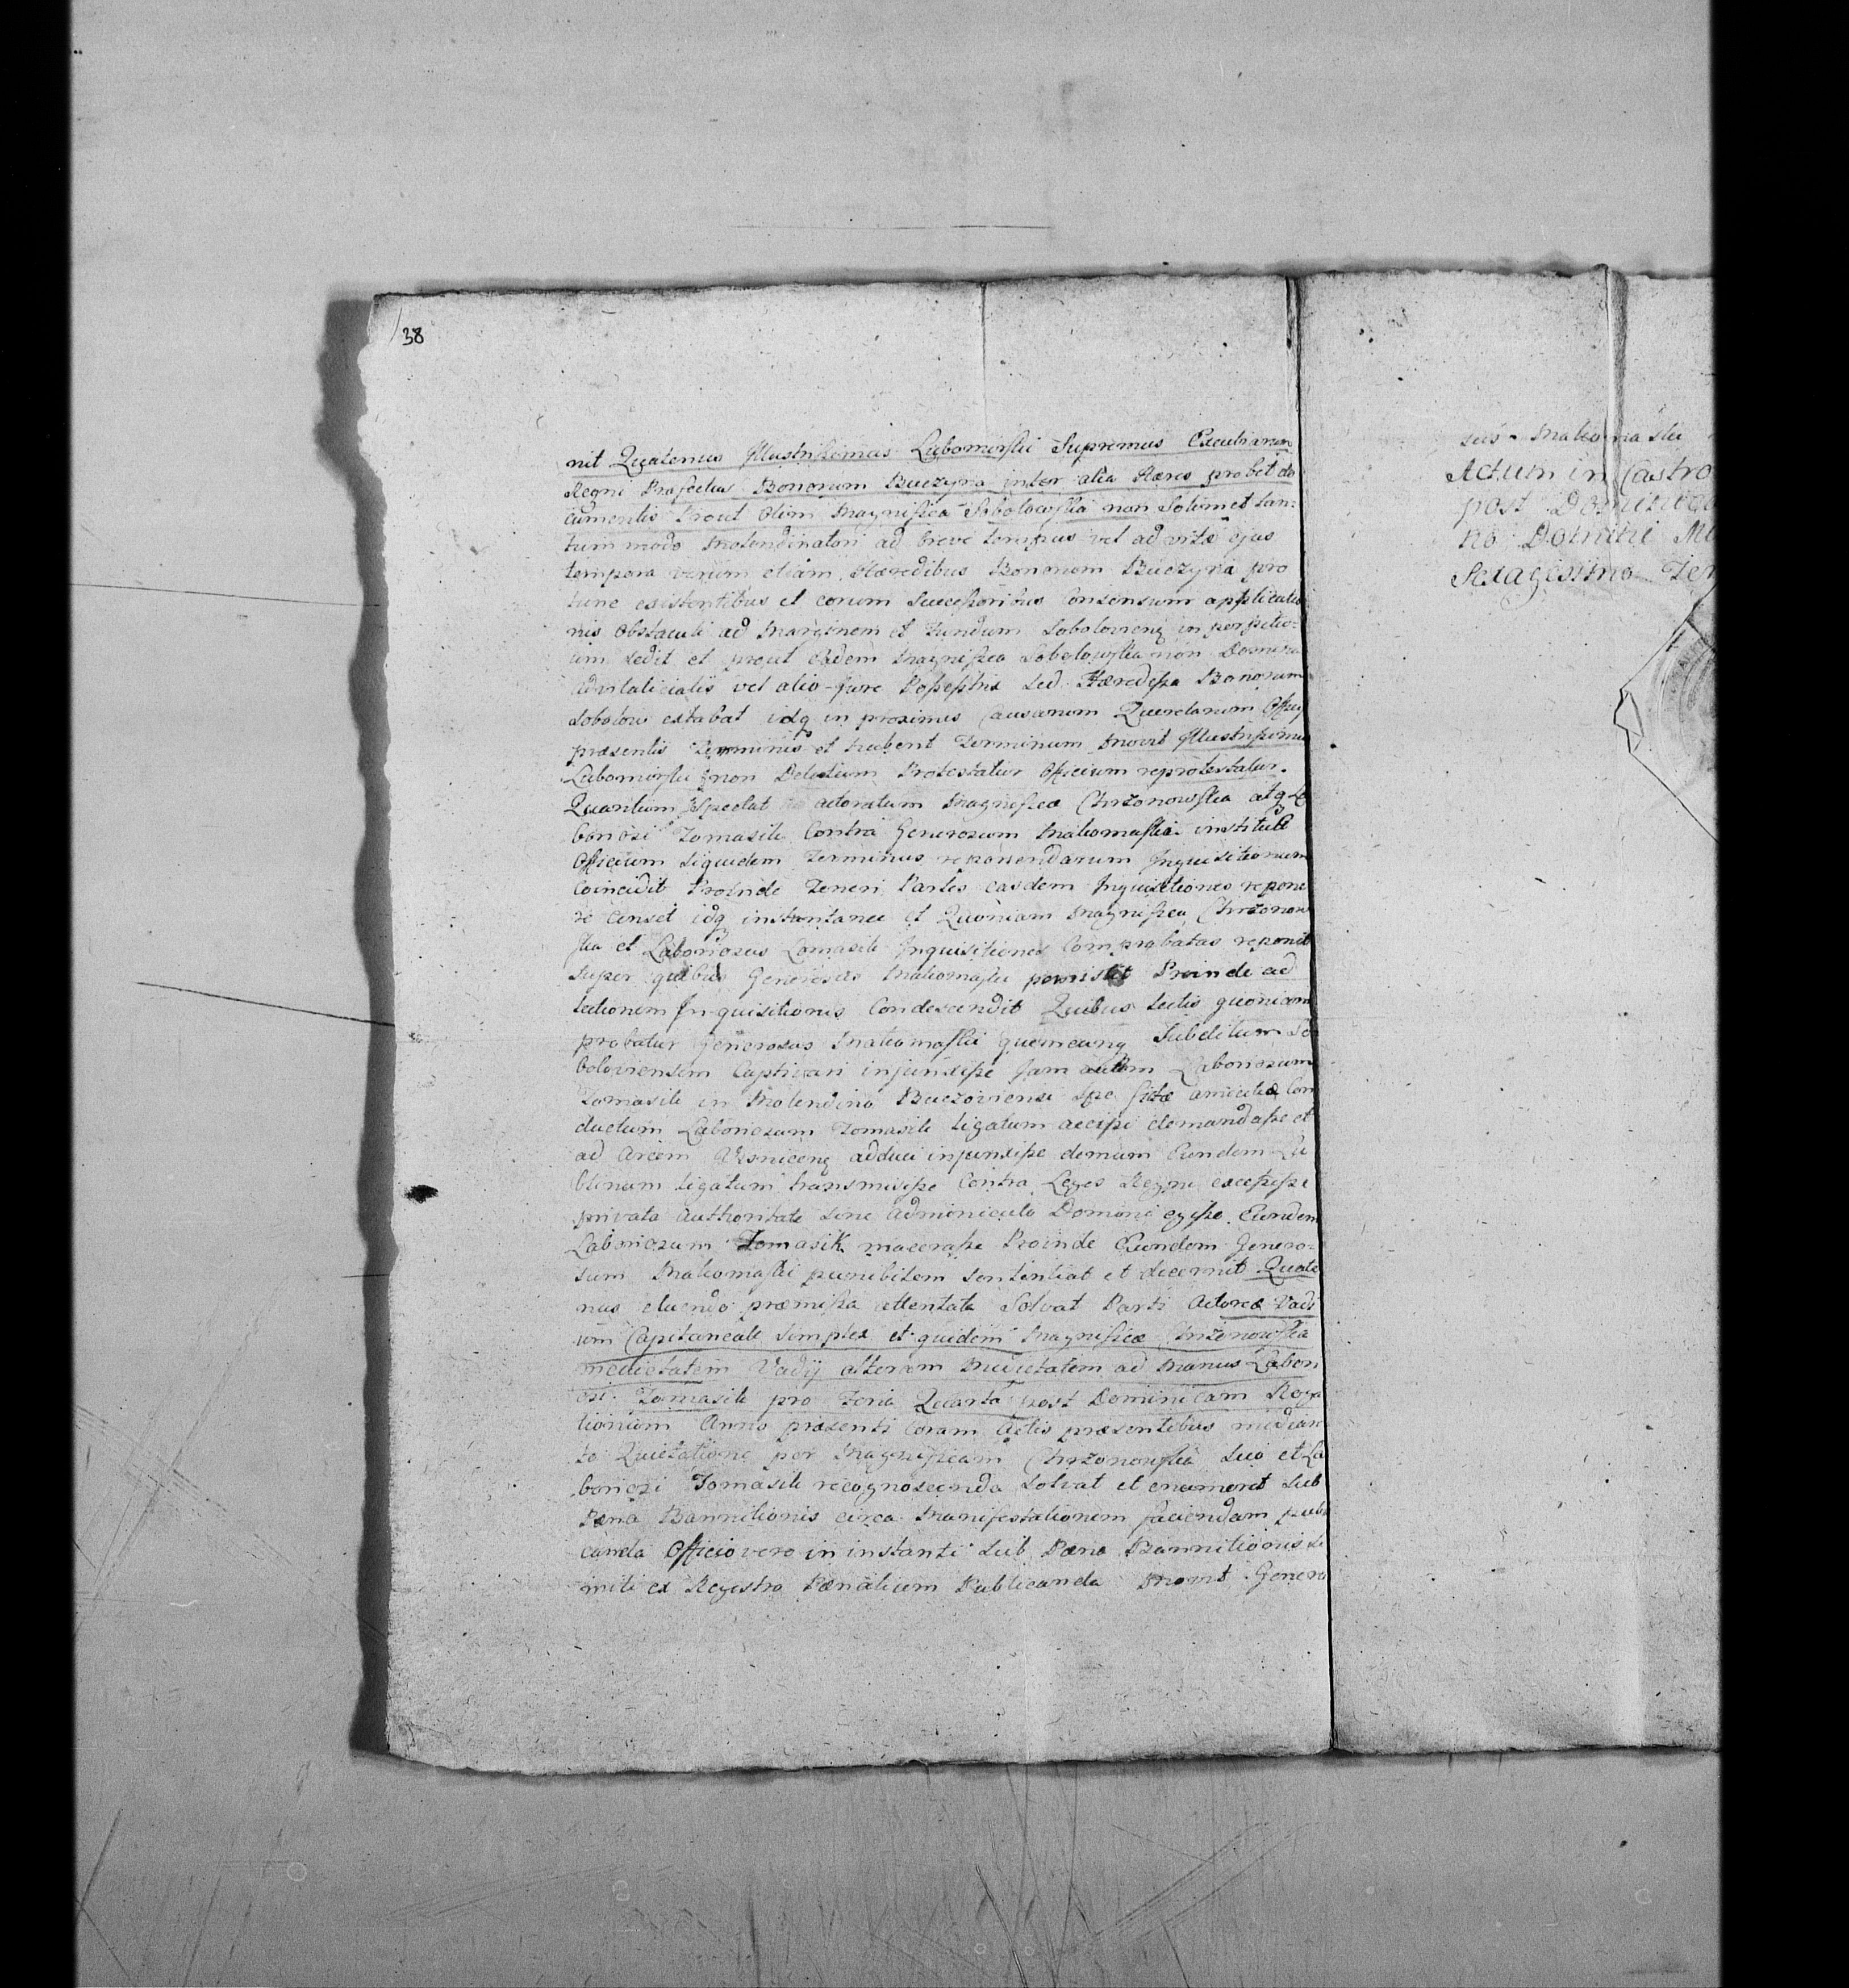 38
nit Quatenus Illustrissimus Lubomirski Supremus Excubiarum
Regni Præfectus Bonorum Buczyna inter alia Hæres probet do
cumentis Prout Olim Magnifica Sobolowska non Solum et tan:
tum modo Molendinatori ad breve tempus vel ad vitæ ejus
tempora verum etiam Hæredibus Bonorum Buczyna pro
tunc existentibus et eorum Successoribus Consensum applicatio
nis Obstaculi ad Marginem et Fundum Soboloviens in perpetu:
um dedit et prout eadem Magnifica Sobolowska non Domina
advitalicialis vel alio Jure Possestrix Sed Hæredissa Bonorum
Sobolow extabat idq in proximis Causarum Querelarum Officy
præsentis Terminis et habent Terminum Movit Illustrissimus
Lubomirski non Delatium Protestatur Officium reprotestatur.
Quantum Spectat actoratum Magnificæ Chrzonowska atq La
boriosi Tomasik Contra Generosum Małiomaski institut
Officium Siquidem Terminus reponendarum Inquisitionum
Coincidit Proinde Teneri Partes easdem Inquisitiones repone
re censet idq instantanee et Quoniam Magnifica Chrzonow
ska et Laboriosus Tomasik Inquisitiones Comprobatas reponit
Super quibus Generosus Małiomaski Proinde ad
lectionem Inquisitionis Condescendit Quibus Lectis quoniam
probatur Generosus Małiomaski quemcunq Subditum So
boloviensem Captivari injunxisse Jam autem Laboriosum
Tomasik in Molendino Buczoviensi Spe fictæ amicitiæ Con
ductum Laboriosum Tomasik Ligatum accipi demandasse et
ad Arcem Wisnicens adduci injunxisse demum Eundem Lu
blinum ligatum transmisisse Contra Leges Regni excessisse
privata Authoritate Sine adminiculo Domini egisse Eundem
Laboriosum Tomasik macerasse Proinde Eundem Genero:
sum Małiomaski punibilem Sententiat et decernit Quate
nus eluendo præmissa attentata Solvat Parti Actoreæ Vadi
um Capitaneale Simplex et quidem Magnificæ Chrzonowska
medietatem Vadij alteram Medietatem ad Manus Labori
osi Tomasik pro Feria Quarta post Dominicam Roga
tionum Anno præsenti Coram Actis præsentibus median
te Quietatione per Magnificam Chrzonowska Suo et La
boriosi Tomasik recognoscenda Solvat et enumeret Sub
Pæna Bannitionis circa Manifestationem faciendam publi
canda Officio vero in instanti Sub Pæna Bannitionis Si
mili ex Registro Pænalium Publicanda Movit Genero
sus Małiomaski
Actum in Castro
post Dominica
no Domini Mi
Sexagesimo Ter